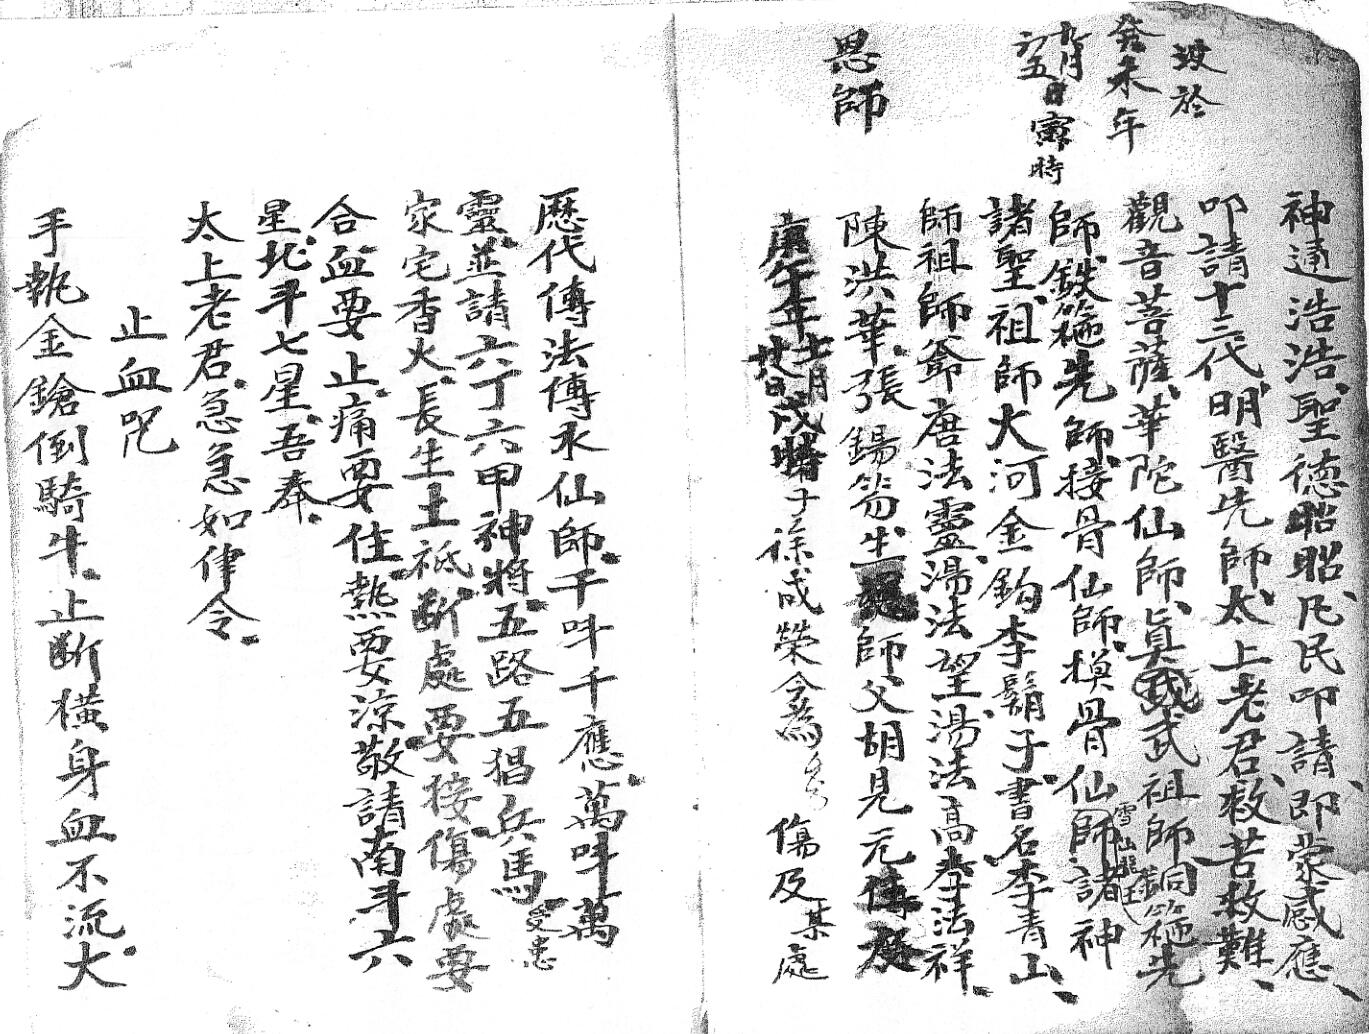 神通浩浩聖德昭昭凡民叩請即蒙感應
叩請十三代明醫先師太上老君救苦救難
觀音菩薩華陀仙師真武祖師銅箍先
雪山龍王
師鉄箍先師接骨仙師損骨仙師諸神
諸聖祖師大河金鈎李鬍子書名李青山
師祖師爺唐法靈湯法望湯法高李法祥
陳洪華張錫芴生師父胡見元
庚午年十一月廿日戌時子徐成榮今為 傷及某處
没於
癸未年
九月
初五日寅時
恩師
歷代傳法傳永仙師千叫千應萬叫萬
靈並請六丁六甲神將五路五猖兵馬
受患
家宅香火長生土祗斷處要接傷處要
合血要止痛要住熱要涼敬請南斗六
星北斗七星吾奉
太上老君急急如律令
止血咒
手執金鎗倒騎牛止斷橫身血不流大